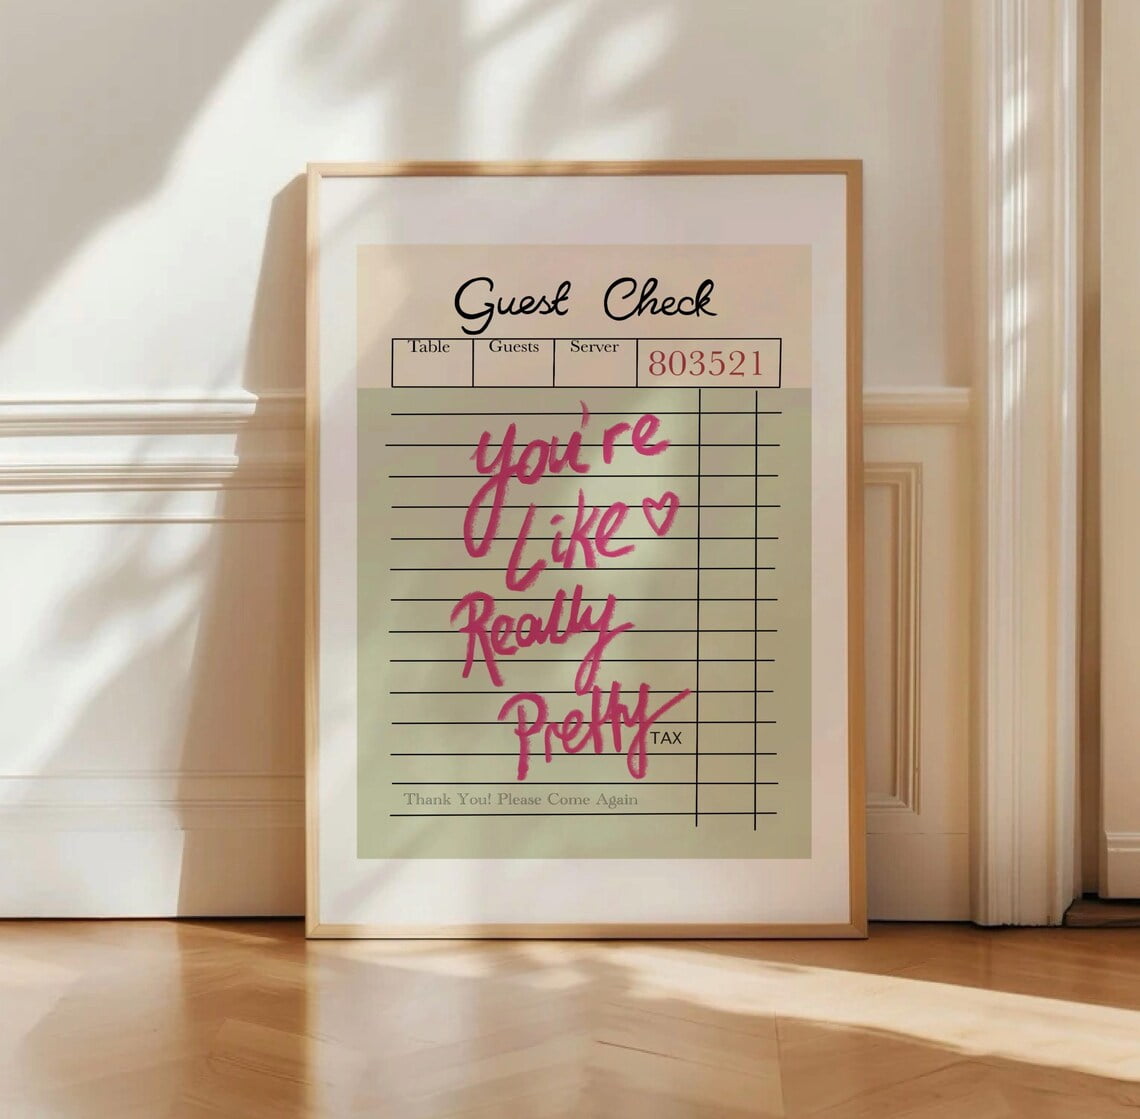 Guest Check
Table Guests Server 803521
You're
Like ♡
Really
Pretty
TAX
Thank You! Please Come Again